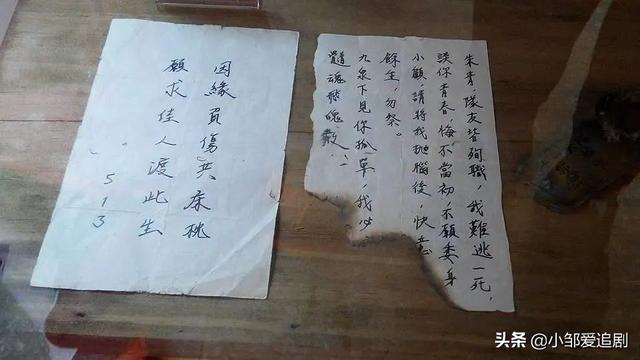 朱青，隊友皆殉職，我難逃一死，
誤你青春，悔不當初，願委身
小顧，請將我拋腦後，快意
餘生，勿祭。
九泉下見你孤單，我必
魂飛魄散
因緣負傷共床桃
願求佳人渡此生
513
头条 @小邹爱追剧